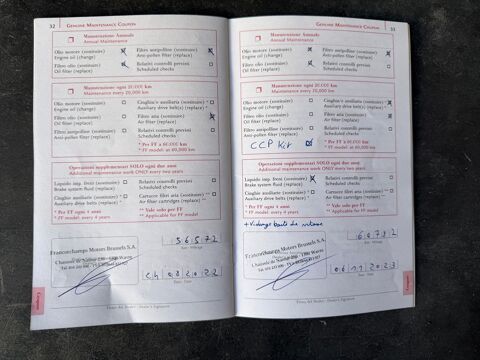 32 GENUINE MAINTENANCE COUPON
Manutenzione Annuale
Annual Maintenance
Olio motore (sostituire)
Engine oil (change)
Filtro antipolline (sostituire)
Anti-pollen filter (replace)
Filtro olio (sostituire)
Oil filter (replace)
Relativi controlli previsti
Scheduled checks
Manutenzione ogni 20.000 km
Maintenance every 20,000 km
Olio motore (sostituire)
Engine oil (change)
Cinghia/e ausiliaria (sostituire) *
Auxiliary drive belt(s) (replace) *
Filtro olio (sostituire)
Oil filter (replace)
Filtro aria (sostituire)
Air filter (replace)
Filtro antipolline (sostituire)
Anti-pollen filter (replace)
Relativi controlli previsti
Scheduled checks
* Per FF a 60.000 km
* FF model: at 60,000 km
Operazioni supplementari SOLO ogni due anni
Additional maintenance work ONLY every two years
Liquido imp. freni (sostituire)
Brake system fluid (replace)
Relativi controlli previsti
Scheduled checks
Cinghia/e ausiliaria (sostituire) *
Auxiliary drive belts (replace) *
Cartucce filtri aria (sostituire) **
Air filter cartridges (replace) **
* Per FF ogni 4 anni
* FF model: every 4 years
** Vale solo per FF
** Applicable for FF model
Francorchamps Motors Brussels S.A.
56572
Km - Mileage
24082022
Data - Date
Timbro del Dealer - Dealer's Signature
Coupons
GENUINE MAINTENANCE COUPON 33
Manutenzione Annuale
Annual Maintenance
Olio motore (sostituire)
Engine oil (change)
Filtro antipolline (sostituire)
Anti-pollen filter (replace)
Filtro olio (sostituire)
Oil filter (replace)
Relativi controlli previsti
Scheduled checks
Manutenzione ogni 20.000 km
Maintenance every 20,000 km
Olio motore (sostituire)
Engine oil (change)
Cinghia/e ausiliaria (sostituire) *
Auxiliary drive belt(s) (replace) *
Filtro olio (sostituire)
Oil filter (replace)
Filtro aria (sostituire)
Air filter (replace)
Filtro antipolline (sostituire)
Anti-pollen filter (replace)
Relativi controlli previsti
Scheduled checks
CCP Kit
* Per FF a 60.000 km
* FF model: at 60,000 km
Operazioni supplementari SOLO ogni due anni
Additional maintenance work ONLY every two years
Liquido imp. freni (sostituire)
Brake system fluid (replace)
Relativi controlli previsti
Scheduled checks
Cinghia/e ausiliaria (sostituire) *
Auxiliary drive belts (replace) *
Cartucce filtri aria (sostituire) **
Air filter cartridges (replace) **
* Per FF ogni 4 anni
* FF model: every 4 years
** Vale solo per FF
** Applicable for FF model
+ Vidange boite de vitesse
Francorchamps Motors Brussels S.A.
Km - Mileage
06112023
Data - Date
Timbro del Dealer - Dealer's Signature
Coupons